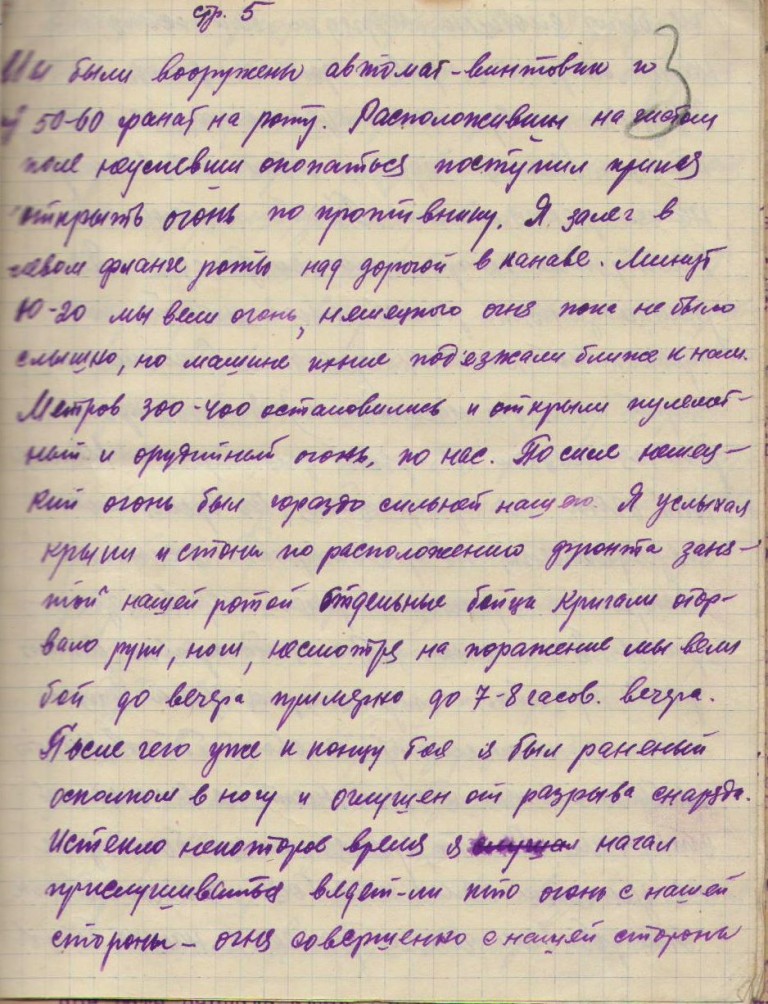 стр. 5
3
Мы были вооружены автомат-винтовки и
50-60 гранат на роту. Расположившись на чистом
поле неуспевши окопаться поступил приказ
открыть огонь по противнику. Я залег в
левом фланге роты над дорогой в канаве. Минут
10-20 мы вели огонь, немецкого огня пока не было
слышно, но машине подъезжали ближе к нам.
Метров 300-400 остановились и открыли пулемет-
ный и орудийный огонь, по нас. По силе немец-
кий огонь был гораздо сильней нашего. Я услыхал
крыки и стоны по расположению фронта заня-
той нашей ротой отдельные бойцы кричали отор-
вало руки, ноги, несмотря на поражение мы вели
бой до вечера примерно до 7-8 часов. вечера.
После чего уже к концу боя я был раненый
осколком в ногу и оглушен от разрыва снаряда.
Истекло некоторое время я начал
прислушиваться ведет-ли кто огонь с нашей
стороны - огня совершенно с нашей стороны